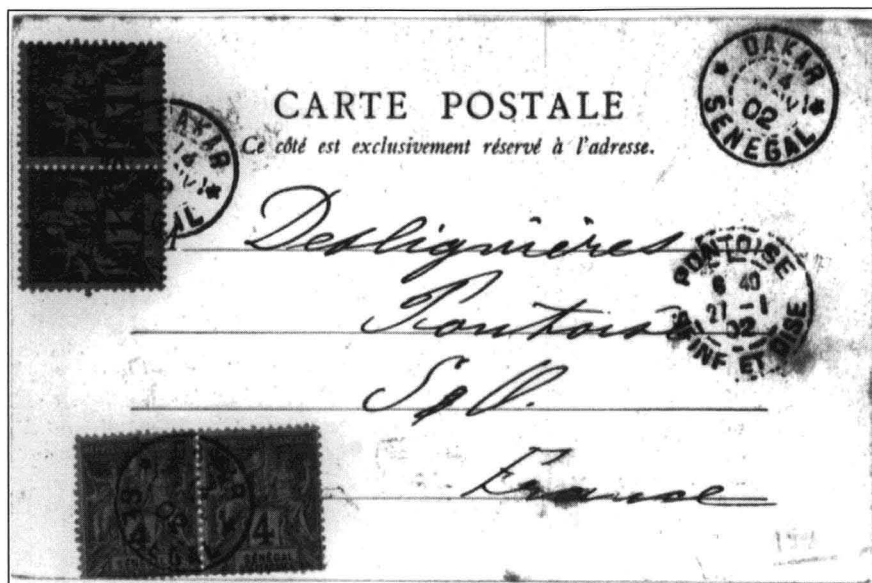 CARTE POSTALE
Ce côté est exclusivement réservé à l'adresse.
DAKAR
14
02
SENEGAL
DAKAR
14
Deslignières
Pontoise
S&O.
France
PONTOISE
6 40
27 - 1
02
SEINE ET OISE
4
4
SÉNÉGAL
SÉNÉGAL